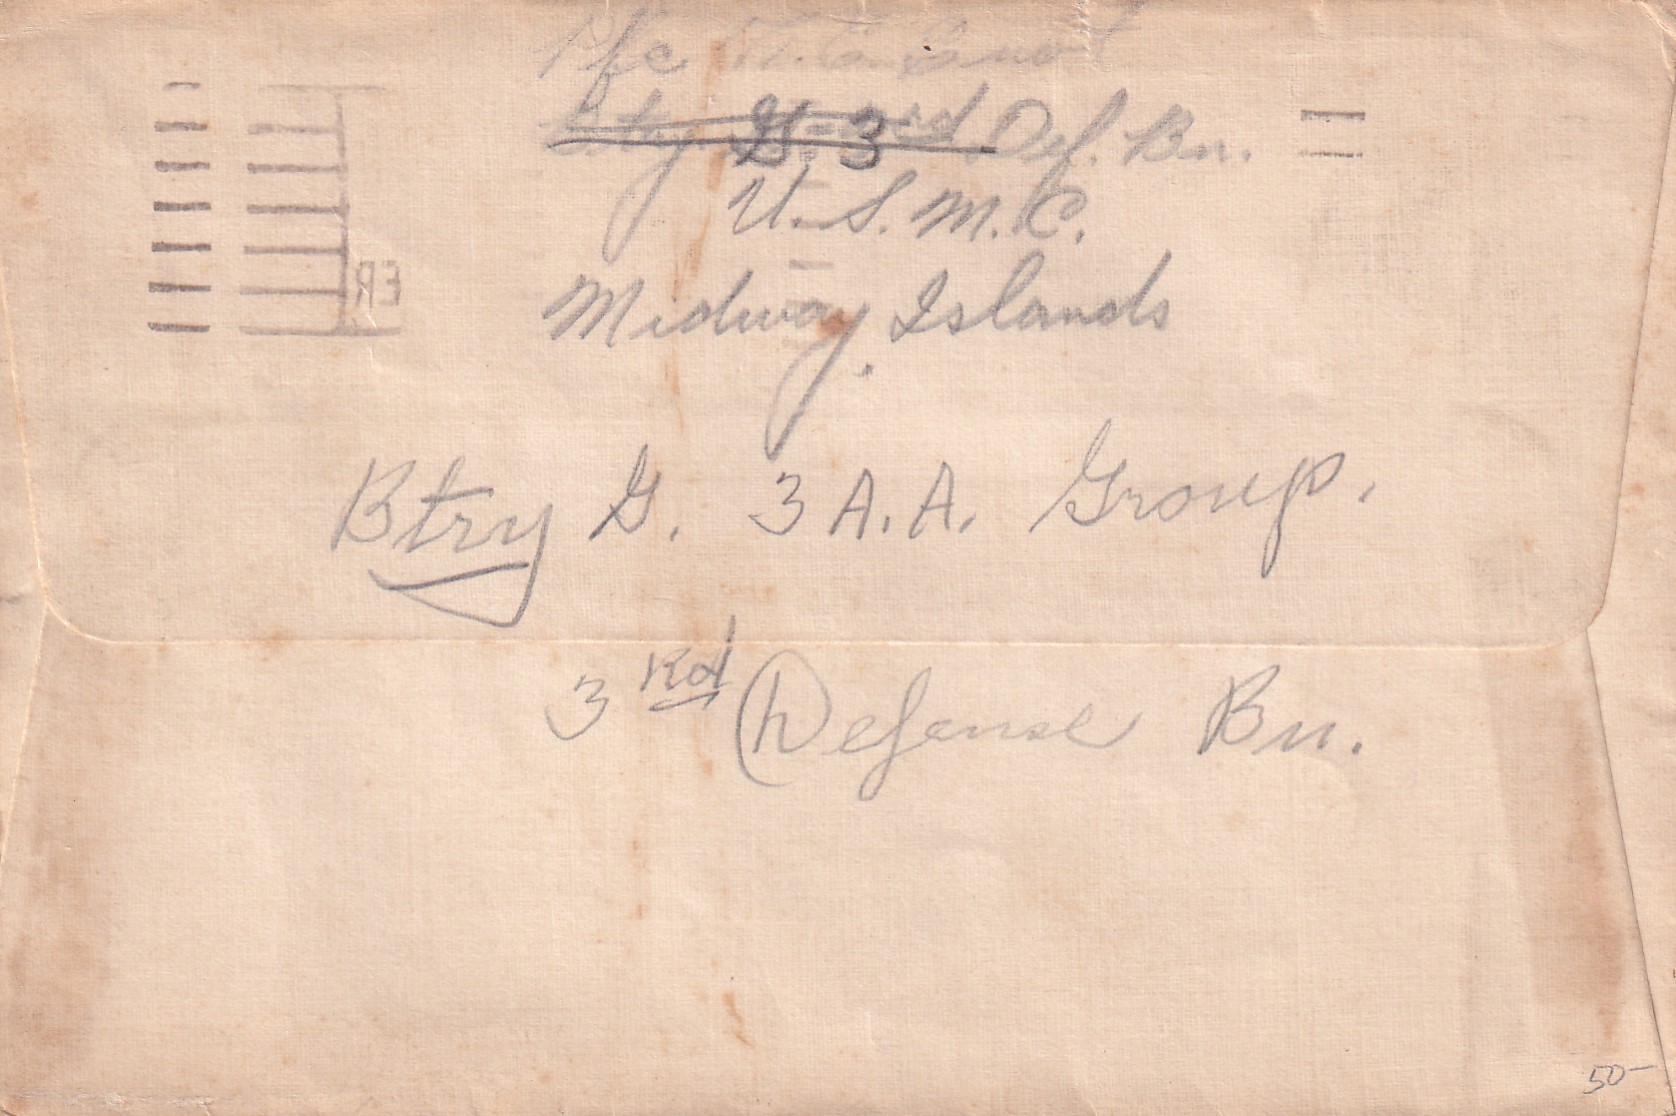 Pfc
Btry G-3rd Def. Bn.
U.S.M.C.
Midway Islands
Btry G. 3 A.A. Group.
3rd Defense Bn.
50-